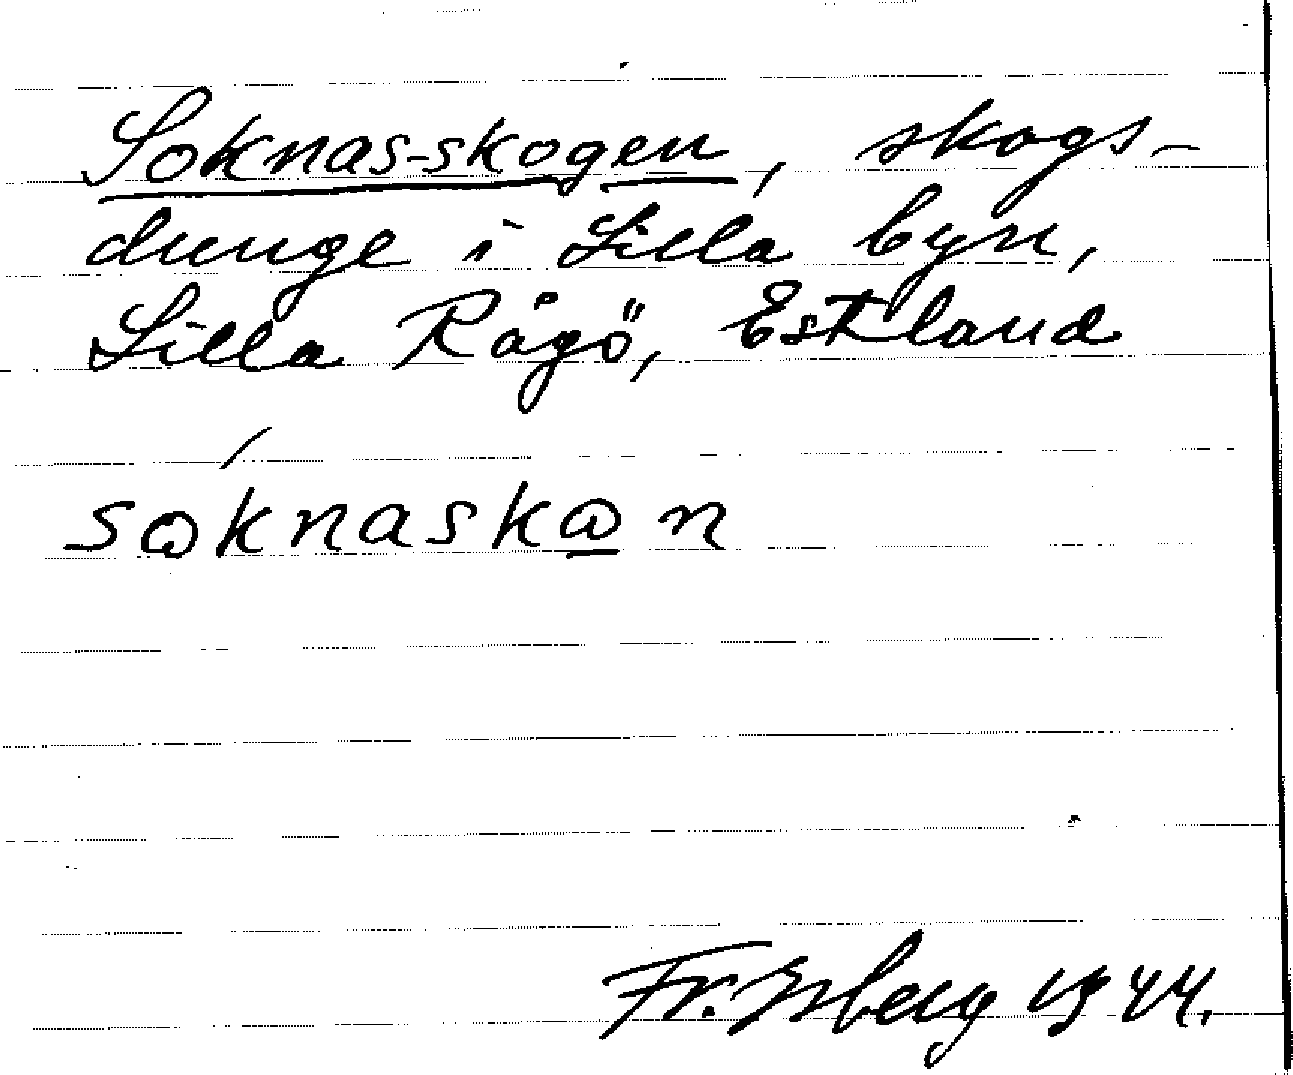 Soknas-skogen, skogs-
dunge i Lilla byn,
Lilla Rågö, Estland
sωknaskωn
Fr. Isberg 1944.